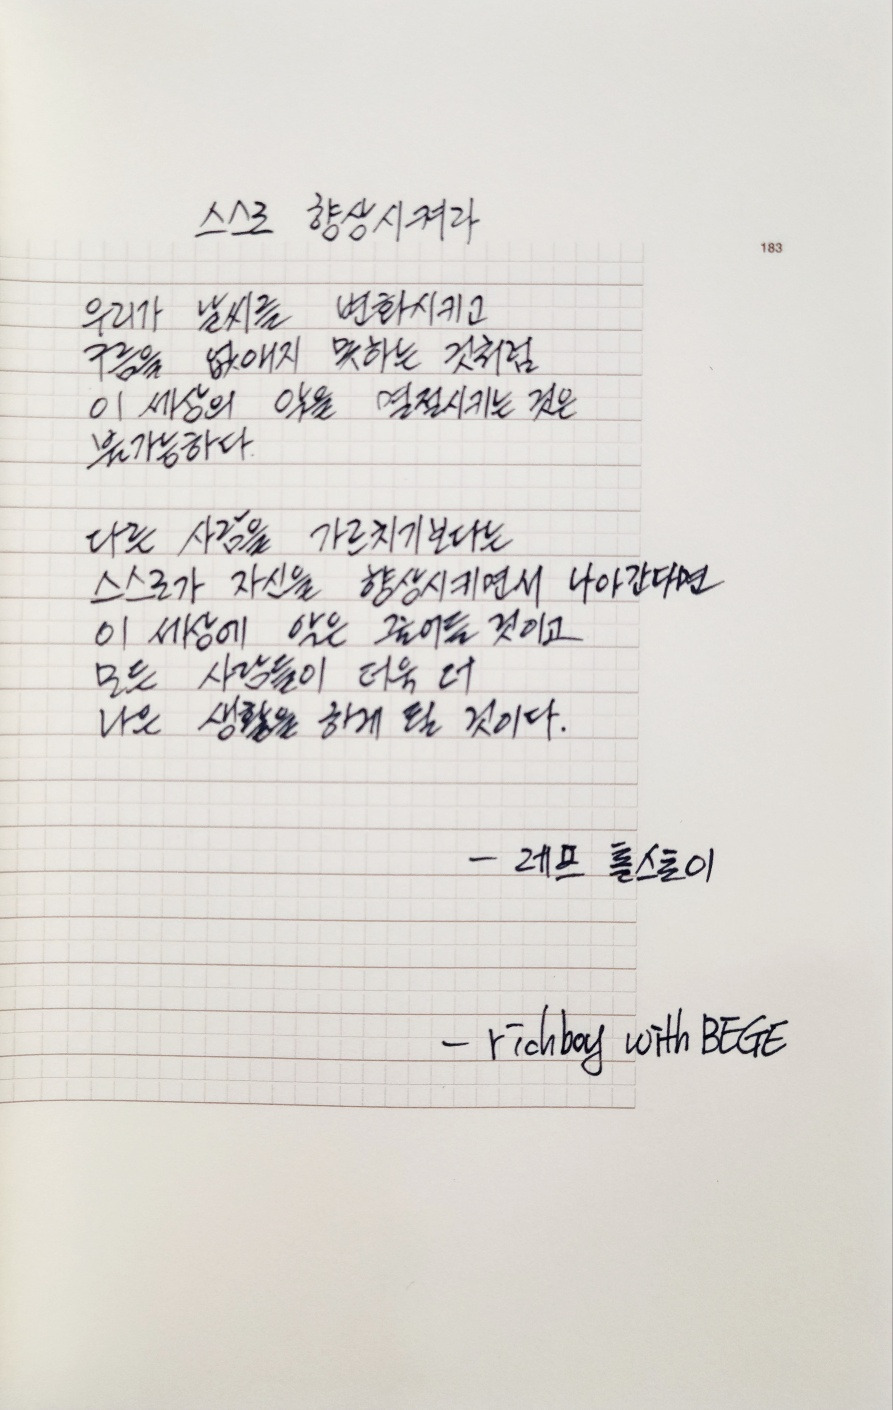 스스로 향상시켜라
183
우리가 날씨를 변화시키고
구름을 없애지 못하는 것처럼
이 세상의 악을 멸절시키는 것은
불가능하다.
다른 사람을 가르치기보다는
스스로가 자신을 향상시키면서 나아간다면
이 세상에 악은 줄어들 것이고
모든 사람들이 더욱 더
나은 생활을 하게 될 것이다.
- 레프 톨스토이
- richboy with BEGE